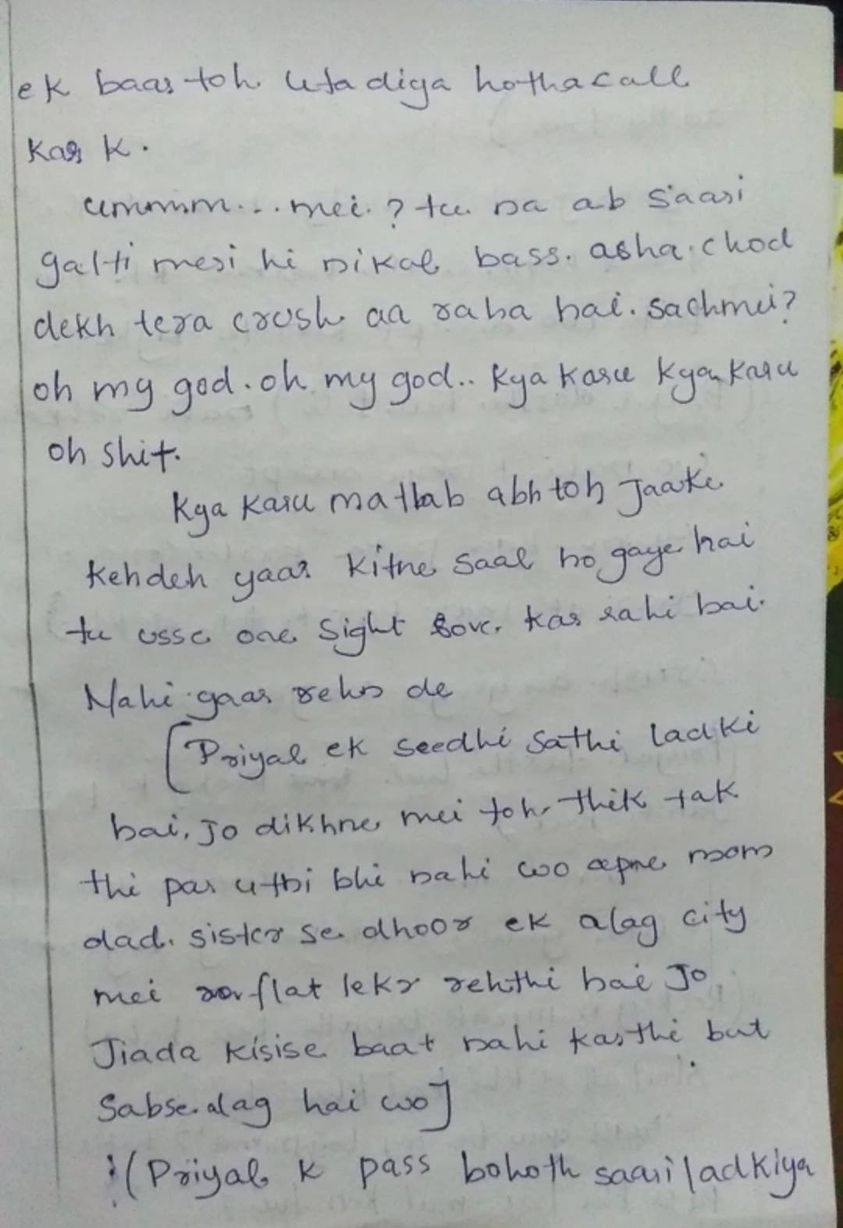 ek baar toh utadiya hothacall
kar k.
ummm... mei.? tu na ab saari
galti meri hi nikal bass. asha.chod
dekh tera crush aa raha hai. sachmei?
oh my god. oh my god.. kya karu kya karu
oh shit.
kya karu matlab abh toh Jaake
kehdeh yaar kitne saal ho gaye hai
tu usse one sight love. kar rahi hai.
Nahi yaar rehn de
[Priyal ek seedhi sathi ladki
hai, Jo dikhne mei toh thik tak
thi par uthi bhi nahi wo apne mom
dad. sister se dhoor ek alag city
mei flat lekr rehthi hai Jo
Jiada kisise baat nahi karthi but
Sabse.alag hai wo]
:(Priyal k pass bohoth saari ladkiya